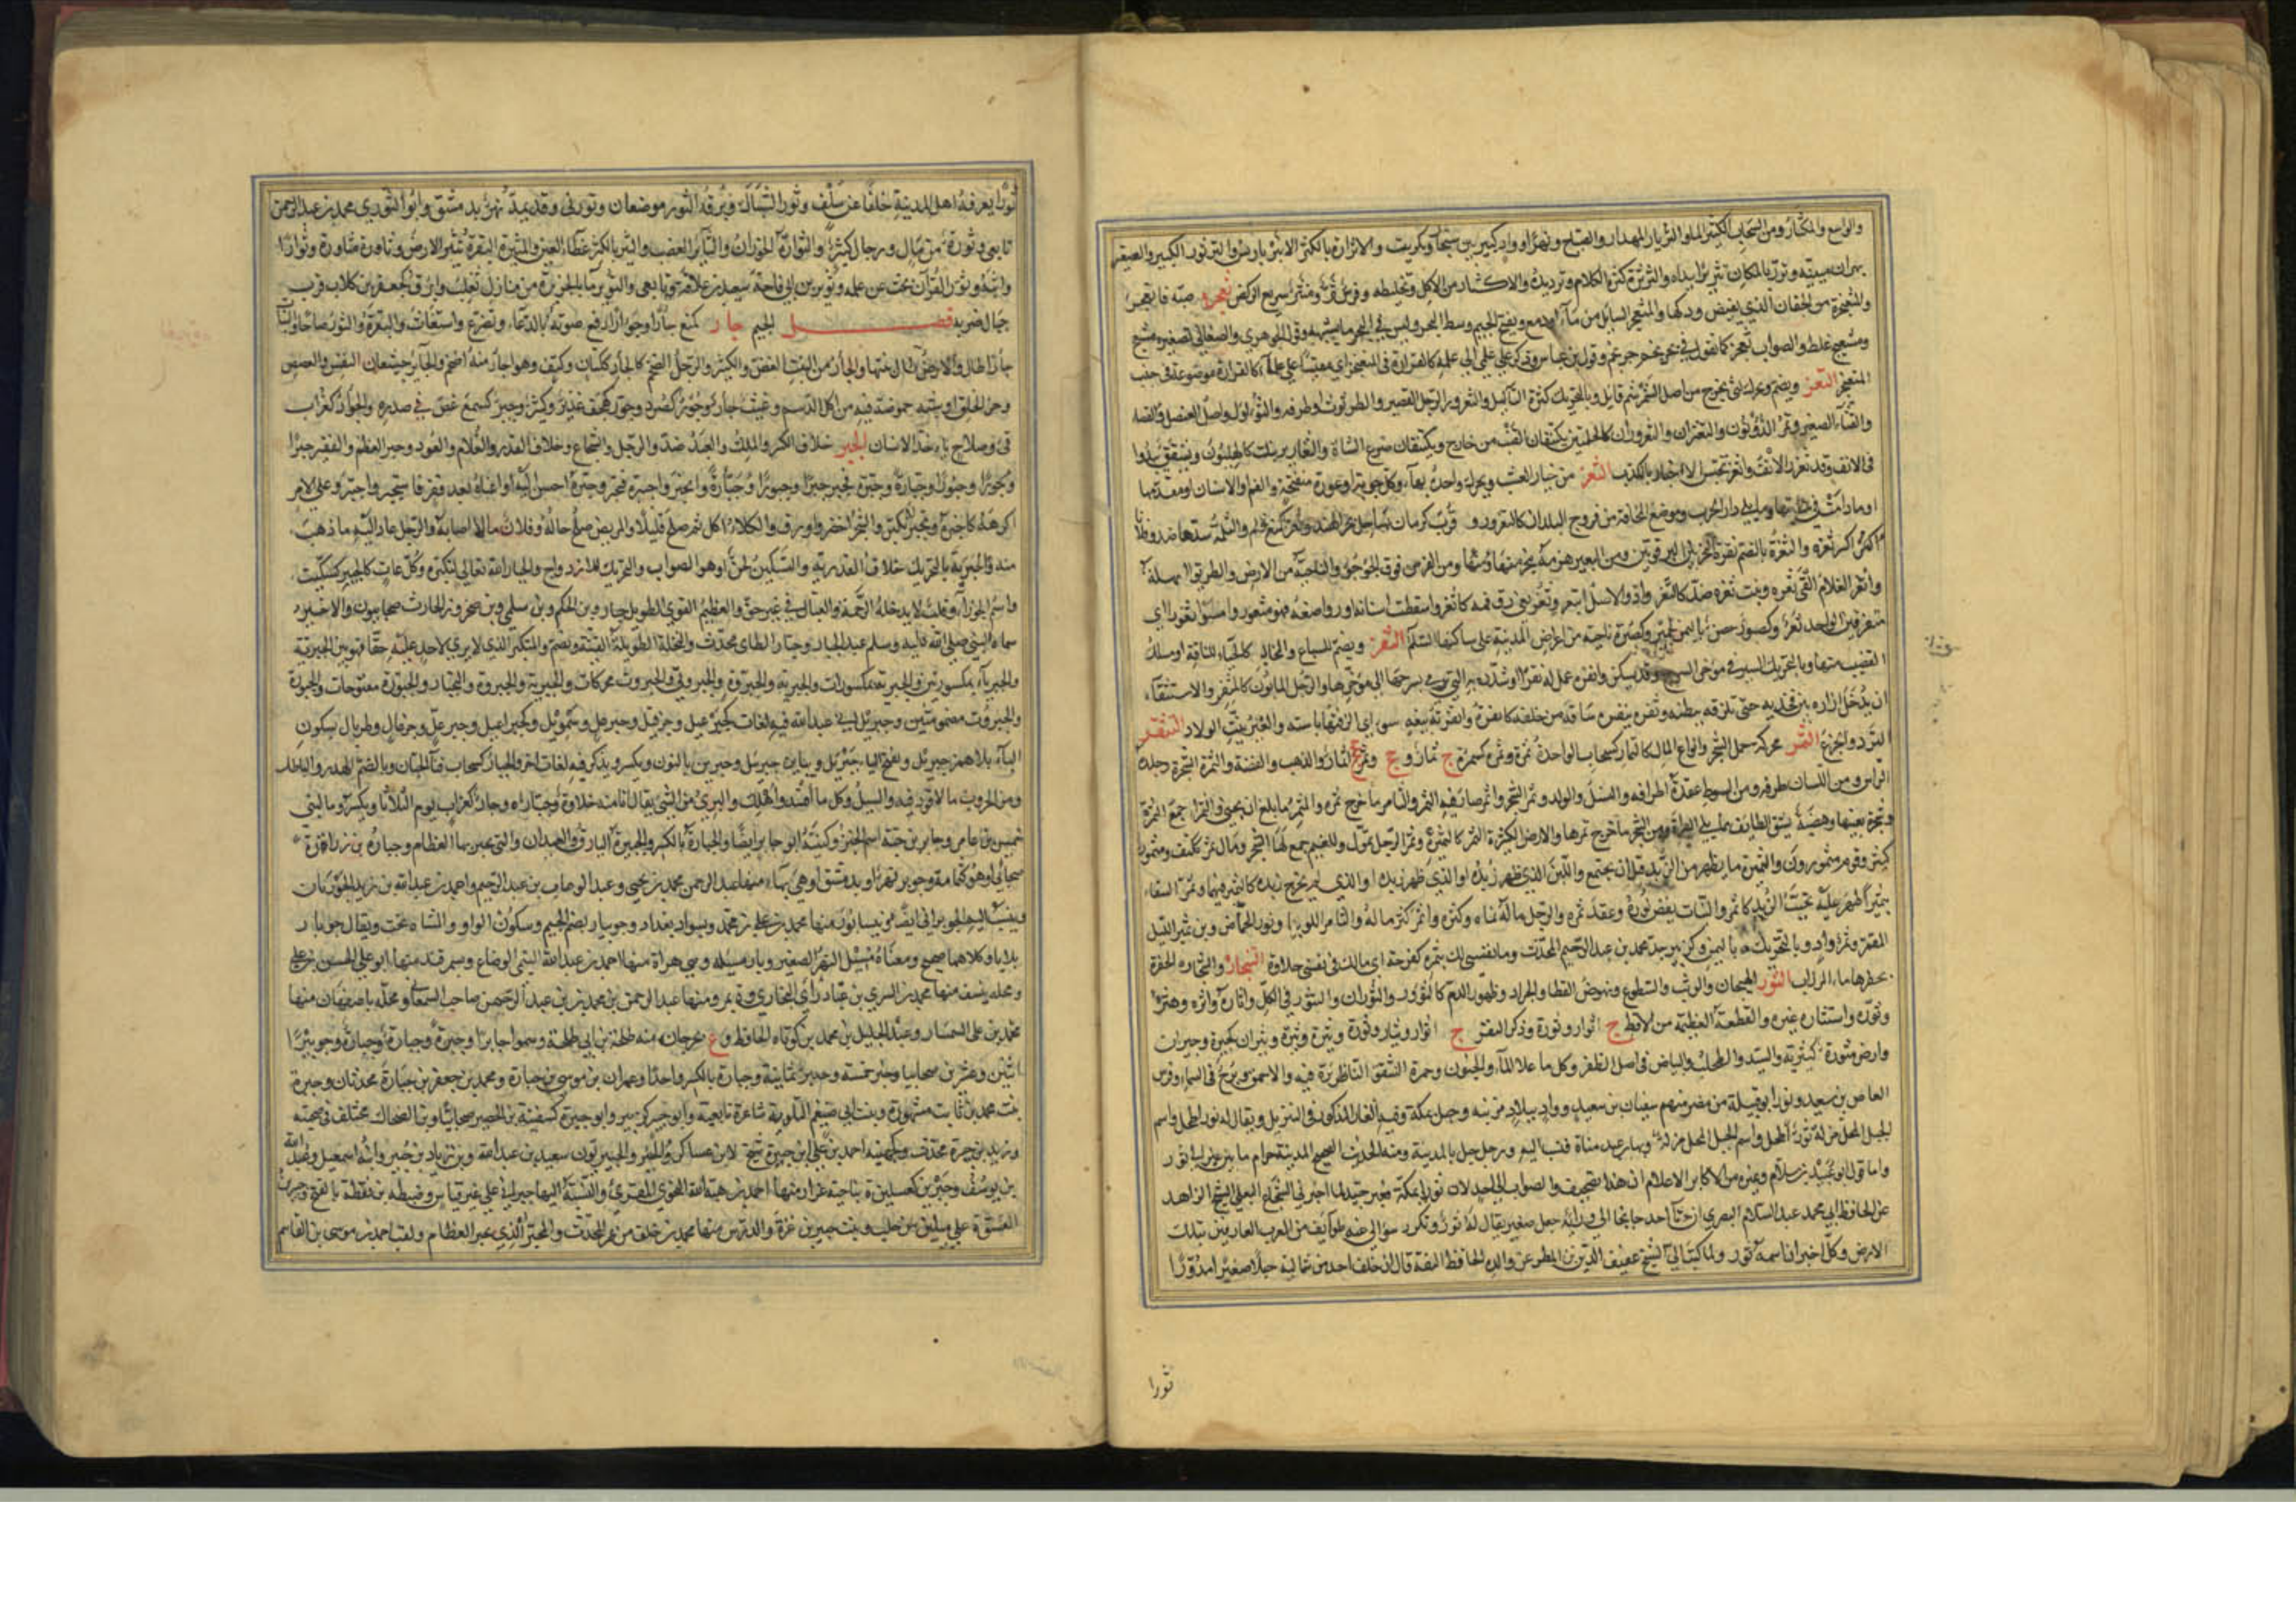 والواسع والمكثار ومن السحاب الكثير الماء والثرثار المهذار والصياح ونهر او واد كبير بين سنجار وتكريت والاثرارة بالكسر الانبرباريس والثرثور الكبير والصغير
نهران بارمينية وثرر بالمكان تثريرا نداه والثرثرة كثرة الكلام وترديده والاكثار من الاكل وتخليطه وفرس ثر ومنثر سريع الركض ثعجره صبه فاثعنجر
والمثعنجرة من الجفان الذي يفيض ودكها والمثعنجر السائل من ماء او دمع وبفتح الجيم وسط البحر وليس في البحر ما يشبهه وقول الجوهري والصغاني تصغيره مثيعج
ومثيعيج غلط والصواب ثعيجر كما تقول في محرنجم حريجم وقول ابن عباس وذكر علي علمي الى علمه كالقرارة في المثعنجر اي مقيسا الى علمه كالقرارة موضوعة في جنب
المثعنجر الثعر ويضم ويحرك لثى يخرج من اصل السمر سم قاتل وبالتحريك كثرة الثآليل والثعرور الرجل القصير والطرثوث او طرفه والثؤلول واصل العنصل والقثاء
والقثاء الصغير وثمر الذؤنون والثعران والثعروران كالحلمتين يكتنفان القنب من خارج ويكتنفان ضرع الشاة والثعارير نبات كالهليون وتشقق يبدو
في الانف وقد ثعر الانف واثعر تجسس الاخبار بالكذب الثغر من خيار العشب ويحرك واحده بهاء وكل جوبة او عورة منفتحة والفم والاسنان او مقدمها
او ما دامت في منابتها وما يلي دار الحرب وموضع المخافة من فروج البلدان كالثغرور و قرب كرمان بساحل بحر الهند وثغر كمنع ثلم والثلمة سدها ضد وفلانا
كسر ثغره والثغرة بالضم نقرة النحر بين الترقوتين ومن البعير هزمة ينحر منها ومن الفرس فوق الجؤجؤ والناحية من الارض والطريق السهلة
واثغر الغلام القى ثغره ونبت ثغره ضد كاثغر وادغر والاصل اثتغر وثغر كعني دق فمه كاثغر وسقطت اسنانه او رواضعه فهو مثغور وامسوا ثغورا اي
متفرقين الواحد ثغر وكصبور حصن باليمن لحمير وكصبرة ناحية من اعراض المدينة على ساكنها السلام الثفر ويضم للسباع والمخالب كالحياء للناقة او مسلك
القضيب منها وبالتحريك السير في مؤخر السرج وقد يسكن واثفره عمل له ثفرا او شده به والمثفار التي ترمي بسرجها الى مؤخرها والرجل المأبون كالمثفر والاستثفار
ان يدخل ازاره بين فخذيه حتى يلزقه ببطنه وثفره يثفره ساقه من خلفه كاثفره واثفرته بيعة سوء اي الزقتها باسته والعنز بيت الولاد التثقر
التردد والجزع الثمر محركة حمل الشجر وانواع المال كالثمار كسحاب الواحدة ثمرة وثمرة كسمرة ج ثمار وجج وثمر ججج اثمار والذهب والفضة والثمرة الشجرة وجلدة
الراس ومن اللسان طرفه ومن السوط عقدة اطرافه والنسل والولد وثمر الشجر واثمر صار فيه الثمر والثامر ما خرج ثمره والمثمر ما بلغ ان يجنى والثمراء جمع الثمرة
وشجرة بعينها وهضبة بشق الطائف مما يلي السراة ومن الشجر ما خرج ثمرها والارض الكثيرة الثمر كالثمرة وثمر الرجل تمول وللغنم جمع لها الشجر ومال ثمر ككتف ومثمور
كثير وقوم مثمورون والثميرة ما يظهر من الزبد قبل ان يجتمع واللبن الذي ظهر زبده او الذي لم يخرج زبده كالثمير فيهما وثمر السقاء
تثميرا ظهر عليه تحبب الزبد كاثمر والنبات نفض نوره وعقد ثمره والرجل ماله نماه وكثره واثمر كثر ماله والثامر اللوبيا ونور الحماض وابن ثمير الليل
المقمر وثمر واد وبالتحريك ة باليمن وكزبير جد محمد بن عبد الرحيم المحدث وما نفسي لك بثمرة كفرحة اي مالك في نفسي حلاوة الثنجار والثنجارة الحفرة
يحفرها ماء المرزاب الثور الهيجان والوثب والسطوع ونهوض القطا والجراد وظهور الدم كالثؤور والثوران والتثور في الكل واثاره واثره وهثره
وثوره واستثاره غيره والقطعة العظيمة من الاقط ج اثوار وثورة وذكر البقر ج اثوار وثيار وثورة وثيرة وثيرة وثيران كجيرة وجيران
وارض مثورة كثيرته والسيد والطحلب والبياض في اصل الظفر وكل ما علا الماء والجنون وحمرة الشفق الثائرة فيه والاحمق وبرج في السماء وفرس
العاص بن سعيد وثور ابو قبيلة من مضر منهم سفيان بن سعيد وواد ببلاد مزينة وجبل بمكة وفيه الغار المذكور في التنزيل ويقال له ثور اطحل واسم
الجبل اطحل نزله ثور بن عبد مناة فنسب اليه وجبل بالمدينة ومنه الحديث الصحيح المدينة حرام ما بين عير الى ثور
واما قول ابي عبيد بن سلام وغيره من الاكابر الاعلام ان هذا تصحيف والصواب الى احد لان ثورا انما هو بمكة فغير جيد لما اخبرني الشجاع البعلي الشيخ الزاهد
عن الحافظ ابي محمد عبد السلام البصري ان حذاء احد جانحا الى ورائه جبل صغير يقال له ثور وتكرر سؤالي عنه طوائف من العرب العارفين بتلك
الارض وكل اخبر ان اسمه ثور ولما كتب الي الشيخ عفيف الدين المطري عن والده الحافظ الثقة قال ان خلف احد عن شماليه جبلا صغيرا مدورا
ثورا
ثورا يعرفه اهل المدينة خلفا عن سلف وثور الشباك وبرقة الثور موضعان وثورى وقد يمد نهر بدمشق وابو الثورين محمد بن عبد الرحمن
تابعي وثورة من مال ورجال كثير والثوارة الخوران والثائر الغضب والثير بالكسر غطاء العين والمثيرة البقرة تثير الارض وثاوره مثاورة وثوارا
واثبه وثور القرآن بحث عن علمه وثوير بن ابي فاختة سعيد بن علاقة تابعي والثوير ماء بالجزيرة من منازل تغلب وابرق لجعفر بن كلاب قرب
جبال ضرية فصل الجيم جأر كمنع جأرا وجؤارا رفع صوته بالدعاء وتضرع واستغاث والبقرة والثور صاحا والنبات
جأرا طال والارض طال نبتها والجأر من النبت الغض والكثير والرجل الضخم كالجآر ككتان وكتف وهو اجأر منه اضخم والجائر جيشان النفس والغصص
وحر الحلق او شبه حموضة فيه من اكل الدسم وغيث جأر وجؤر كصرد وجور كهجف غزير وكثير وجئر كسمع غص في صدره والجؤار كغراب
قيء وسلاح ياخذ الانسان الجبر خلاف الكسر والملك والعبد ضد والرجل والشجاع وخلاف القدر والغلام والعود وجبر العظم والفقير جبرا
وجبورا وجبارة وجبره فجبر جبرا وجبورا وانجبر واجتبر فتجبر وجبره احسن اليه او اغناه بعد فقر فاستجبر واجتبر وعلى الامر
اكرهه كاجبره وتجبر تكبر والشجر اخضر واورق والكلأ اكل ثم صلح قليلا والمريض صلح حاله وفلان مالا اصابه والرجل عاد اليه ما ذهب
عنه والجبرية بالتحريك خلاف القدرية والتسكين لحن او هو الصواب والتحريك للازدواج والجبار الله تعالى لتكبره وكل عات كالجبير كسكيت
واسم الجوزاء وقلب لا تدخله الرحمة والقتال في غير حق والعظيم القوي الطويل جبار وابن الحكم وابن سلمى وابن صخر وابن الحارث صحابيون والاخير
سماه النبي صلى الله عليه وسلم عبد الجبار وجبار الطائي محدث والنخلة الطويلة الفتية وتضم والمتكبر الذي لا يرى لاحد عليه حقا فهو بين الجبرية
والجبرياء مكسورتين والجبرية بكسرات والجبرية والجبروة والجبروتى والجبروت محركات والجبرية والجبروة والتجبار والجبورة مفتوحات والجبورة
والجبروت مضمومتين وجبريل اي عبد الله فيه لغات كجبرعيل وحزقيل وجبرعل وسمويل وجبراعيل وجبرعل وخزعال وطربال بسكون
الياء بلا همز جبريل وبفتح الياء جبريل وبياءين جبرييل وجبرين بالنون ويكسر ويذكر فيه لغات اخر والجبار كسحاب فناء الجبان وبالضم الهدر والباطل
ومن الحروب ما لا قود فيه والسيل وكل ما افسد واهلك والبريء من الشيء يقال انا منه خلاوة وجبار وجبار كغراب يوم الثلاثاء ويكسر وماء لبني
خميس بن عامر وجابر بن حبة اسم الخبز وكنيته ابو جابر ايضا والجبارة بالكسر والجبيرة اليارق والعيدان التي تجبر بها العظام وجبارة بن زرارة
صحابي او هو كثمامة وجوبر نهر او ة بدمشق او هي بهاء منها عبد الرحمن بن محمد بن يحيى وعبد الوهاب بن عبد الرحيم واحمد بن عبد الله بن يزيد الجوبريان
وينسب اليه الجوبراني ايضا وة بنيسابور منها محمد بن علي بن محمد وة بسواد بغداد وجويبار بضم الجيم وسكون الواو والمثناة تحت ويقال جوبار
بلا ياء وكلاهما صحيح ومعناه مسيل النهر الصغير وبار مسيله وهي ة بهراة منها احمد بن عبد الله التيمي الوضاع وة بسمرقند منها ابو علي الحسن بن علي
ومحلة بنسف منها محمد بن السري بن عباد راى البخاري وة بمرو منها عبد الرحمن بن محمد بن عبد الرحمن صاحب السمعاني ومحلة باصفهان منها
محمد بن علي السمسار وعبد الجليل بن محمد بن كوتاه الحافظ وع بجرجان منه طلحة بن ابي طلحة وسموا جابرا وجبرا وجبيرا وجبيرة وجبارة وجويبرا
اثنين وعشرين صحابيا وجبر خمسة وجبير ثمانية وجبارة بالكسر واحدا وعمران بن موسى بن جبارة ومحمد بن جعفر بن جبارة محدثان وجبرة
بنت محمد بن ثابت مشهورة وبنت ابي ضيغم البلوية شاعرة تابعية وابو جبير كزبير وابو جبيرة كسفينة بن الحصين صحابيان وابن الضحاك مختلف في صحبته
وزيد بن جبيرة محدث وكجهينة احمد بن علي بن جبيرة شيخ لابن عساكر والجبيريون سعيد بن عبد الله وابن زياد بن جبير وابنه اسمعيل وعبيد الله
بن يوسف وجبرين كغسلين ة بناحية عزاز منها احمد بن هبة الله النحوي المقرئ والنسبة اليها جبراني على غير قياس وضبطه ابن نقطة بالفتح وجبرين
الفستق ة على ميلين من حلب وبيت جبرين بين غزة والقدس منها محمد بن خلف بن عمر المحدث والمجبر الذي يجبر العظام ولقب احمد بن موسى بن القاسم